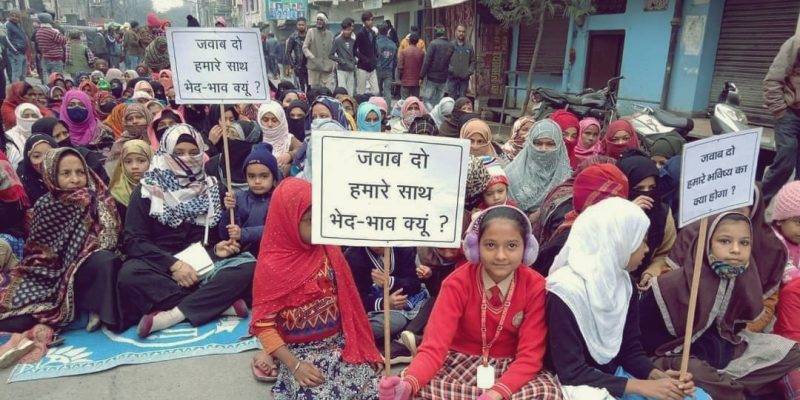 जवाब दो
हमारे साथ
भेद-भाव क्यूं ?
जवाब दो
हमारे साथ
भेद-भाव क्यूं ?
जवाब दो
हमारे भविष्य का
क्या होगा ?